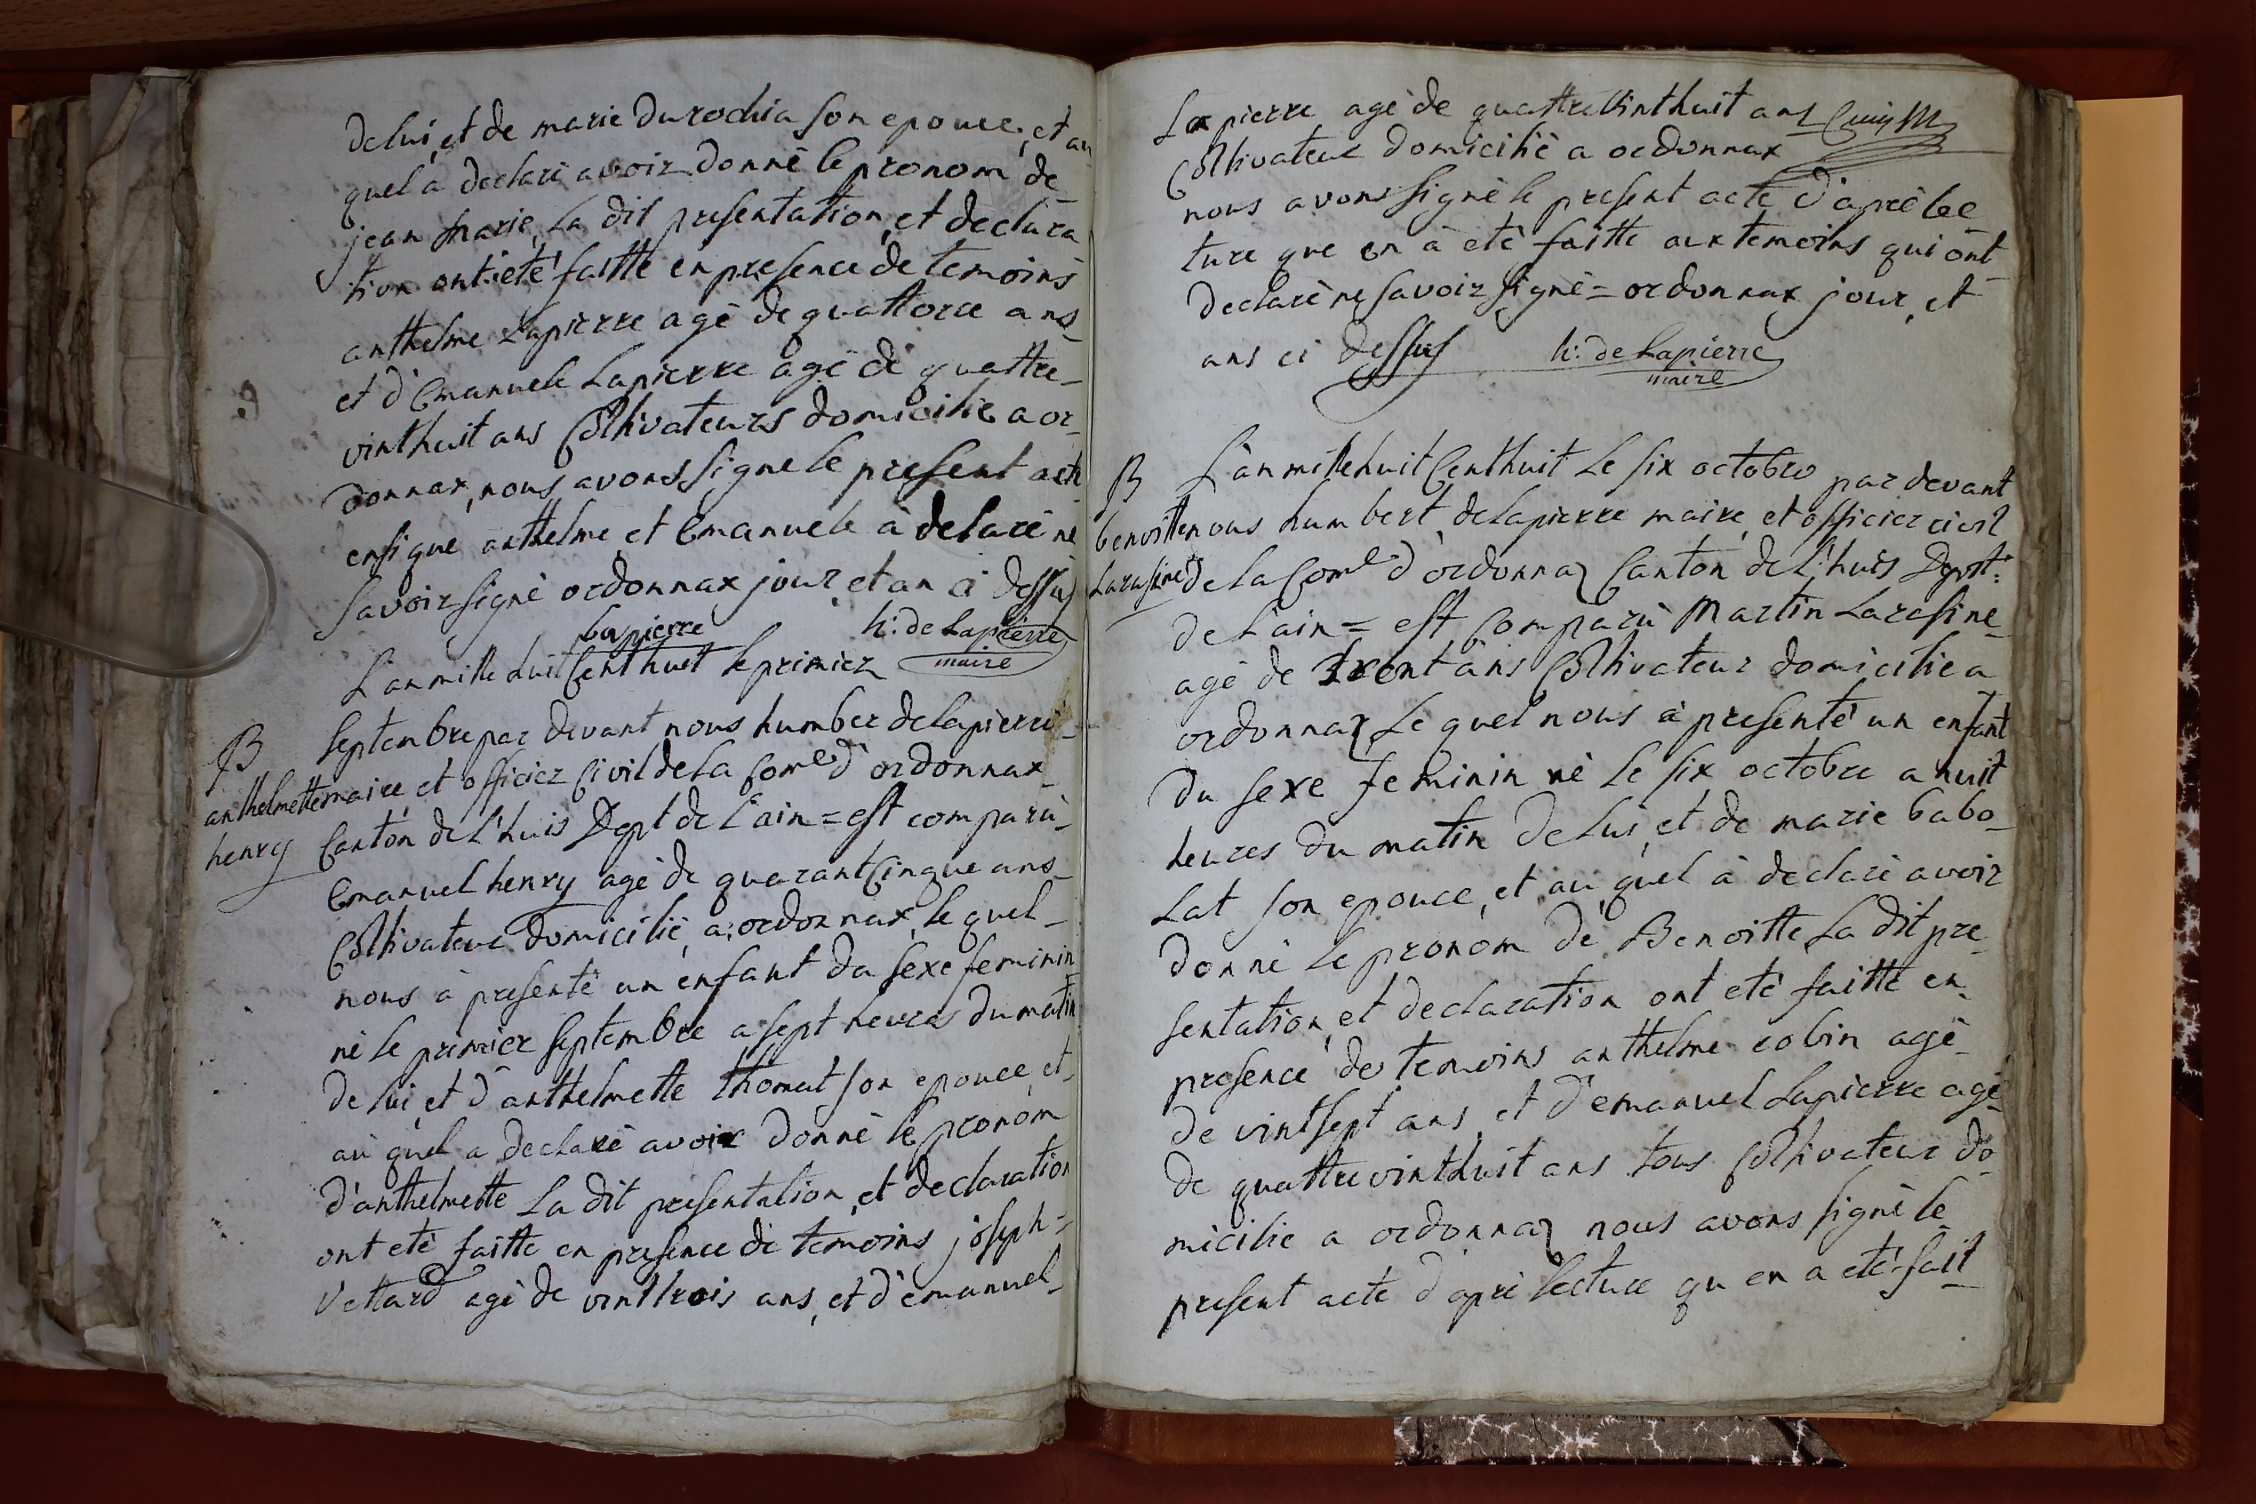 de lui, et de marie Durochia son epouce, et au
quel a declaré avoir donné le pronom de
jean marie, La dit presentation, et declara
tion ont été faitte en presence de temoins
anthelme Lapierre agé de quattorce ans
et d'Emanuele Lapierre agé de quattre-
vinthuit ans Coltivateurs domicilié a or-
donnax, nous avons signe le present acte
ensigne anthelme et Emanuele à delaré ne
savoir signé ordonnax jour, et an ci dessus
Lapierre h: de Lapierre
maire
L'an mille huit Cent huit le primier
septembre par devant nous humber de Lapierre
B
anthelmette maire et officier Civil de La Come d'ordonnax
henry Canton de L'huis Dept de L'ain = est comparù
Emanuel henry agé de quarant Cinque ans
Coltivateur domicilié, a ordonnax, le quel
nous à presenté un enfant du sexe feminin
né le primier septembre a sept heures du matin
de lui, et d'anthelmette thomat son epouce, et
au quel a declaré avoir donné le pronom
d'anthelmette La dit presentation, et declaration
ont eté faitte en presence de temoins joseph
Vettard agé de vinttrois ans, et d'emanuel
Lapierre agé de quattrevinthuit ans
Coltivateur domicilié a ordonnax
nous avons signé le present acte d'aprè lec
ture que en à eté faitte aux temoins qui ont
declaré ne savoir signé = ordonnax jour, et
ans ci dessus h: de Lapierre
maire
B L'an mille huit Cent huit Le six octobre par devant
benoitte nous humbert de Lapierre maire, et officier civil
Larasine de La Come d'ordonnaz Canton de L'huis Dept:
de L'ain = est Comparù Martin Larasine
agé de trent ans Coltivateur domicilié a
ordonnaz Le quel nous à presenté un enfant
du sexe feminin né Le six octobre a huit
heures du matin de Lui, et de marie babo-
Lat son epouce, et au quel à declaré avoir
donné Le pronom de Benoitte La dit pre
sentation, et declaration ont eté faitte en
presence des temoins anthelme cobin agé
de vintsept ans, et d'emanuel Lapierre agé
de quattrevinthuit ans tous Coltivateur do
micilie a ordonnaz nous avons signé le
present acte d'aprè lecture qu en a eté fait